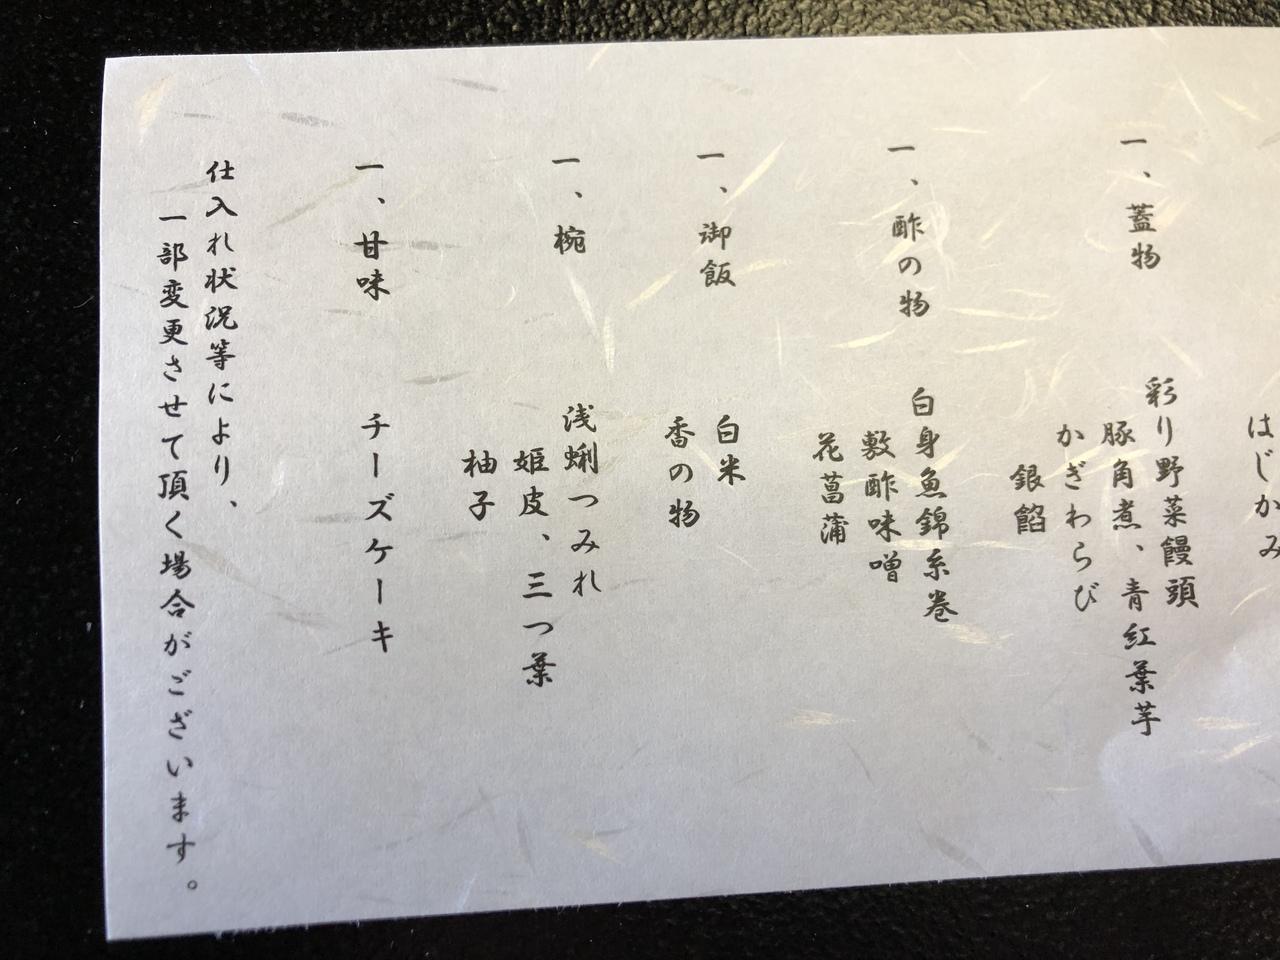 はじかみ
一、蓋物
彩り野菜饅頭
豚角煮、青紅葉芋
かぎわらび
銀餡
一、酢の物
白身魚錦糸巻
敷酢味噌
花菖蒲
一、御飯
白米
香の物
一、椀
浅蜊つみれ
姫皮、三つ葉
柚子
一、甘味
チーズケーキ
仕入れ状況等により、
一部変更させて頂く場合がございます。